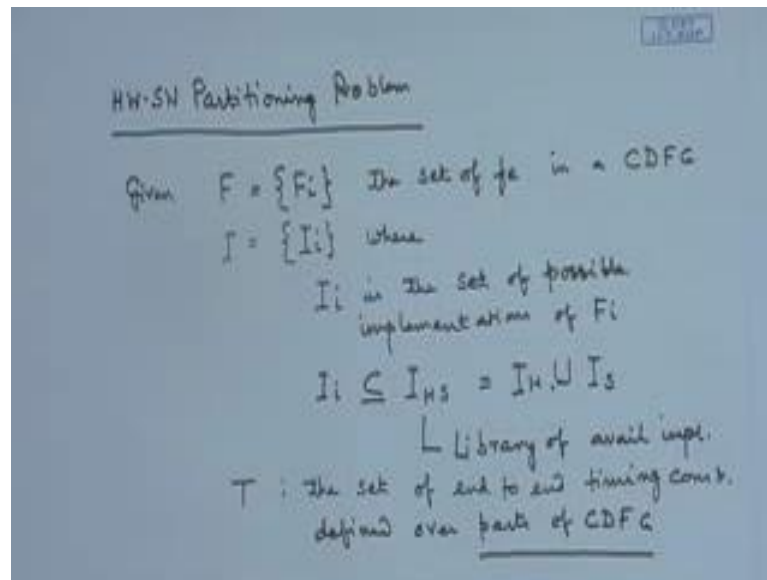 HW-SW Partitioning Problem
Given F = {Fi} The set of fn in a CDFG
I = {Ii} where
Ii is the set of possible
implementations of Fi
Ii ⊆ IHS = IH ∪ IS
Library of avail impl.
T : The set of end to end timing const.
defined over parts of CDFG